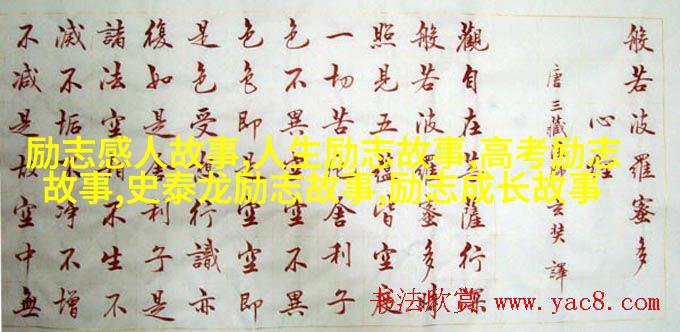 般若波羅蜜多
心經
唐三藏法師玄奘譯
觀自在菩薩行深
般若波羅蜜多時
照見五蘊皆空度
一切苦厄舍利子
色不異空空不異
色色即是空空即
是色受想行識亦
復如是舍利子是
諸法空相不生不
滅不垢不淨不增
不減是故空中無
励志感人故事,人生励志故事,高考励志
故事,史泰龙励志故事,励志成长故事
书法欣赏 www.yac8.com